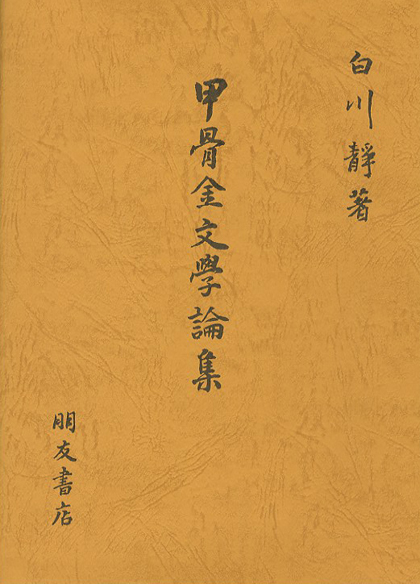 白川靜著
甲骨金文學論集
朋友書店